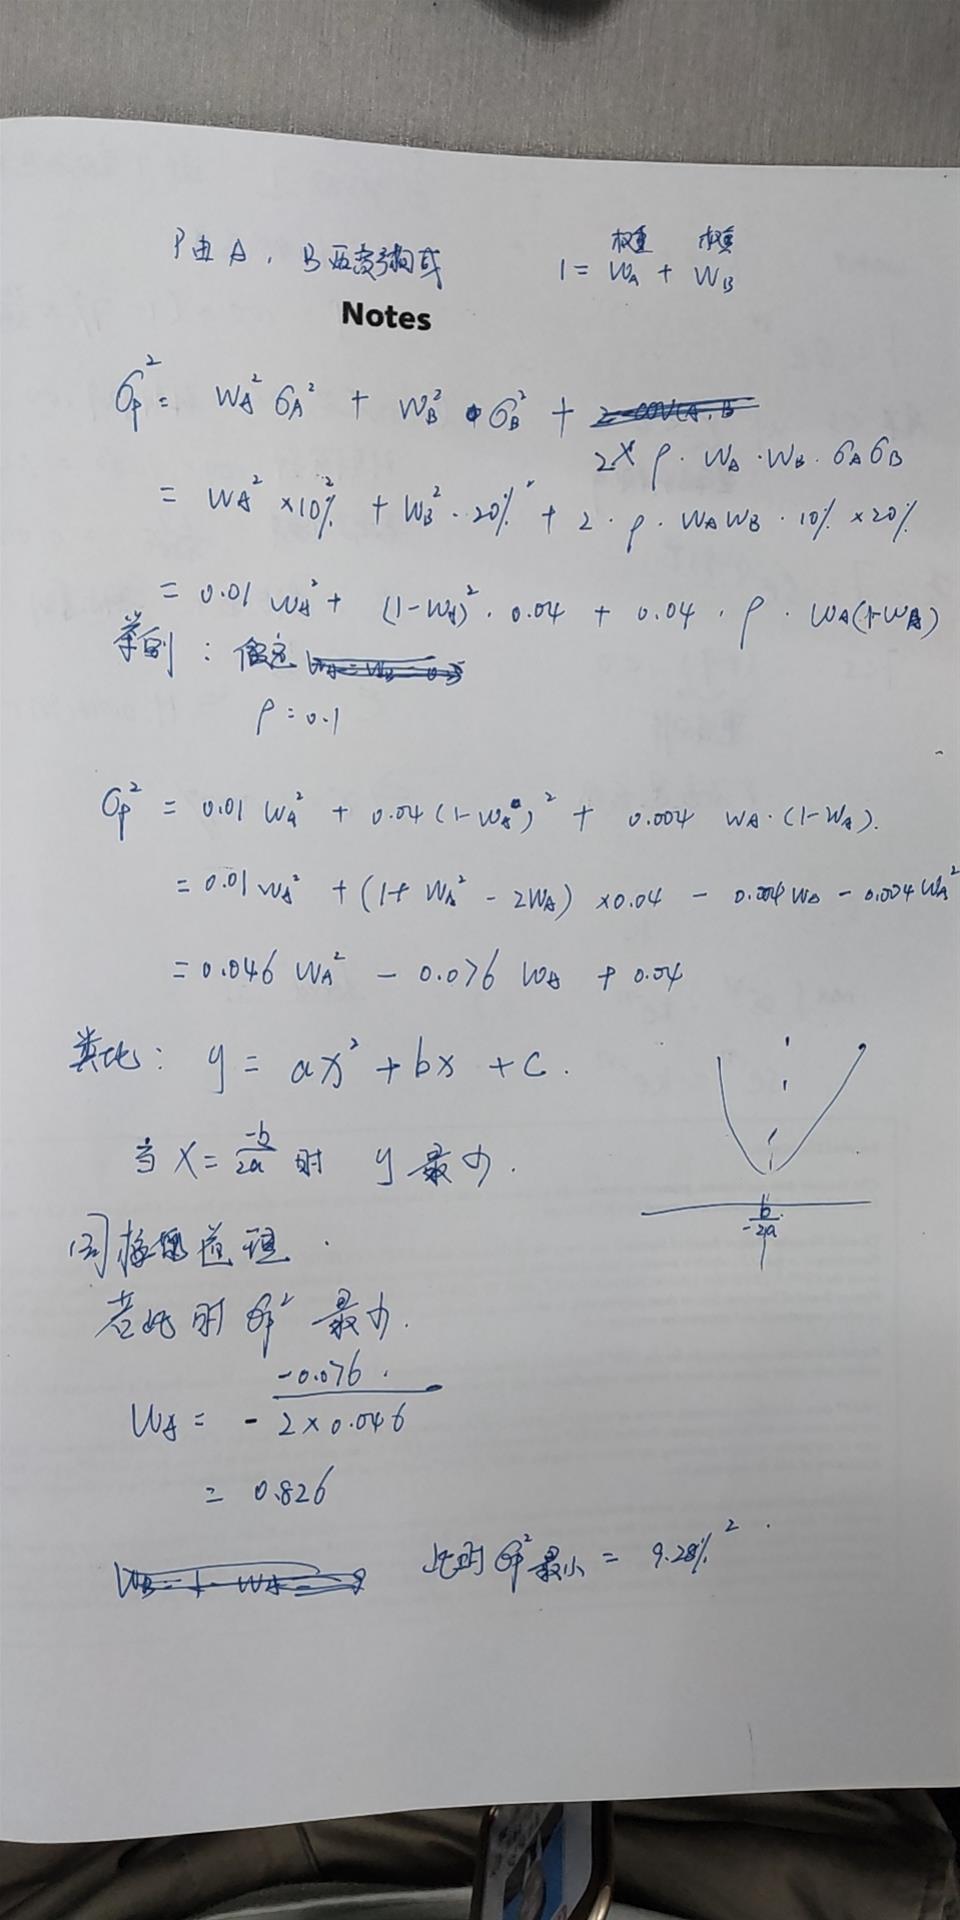 P由A,B两资产构成
权重 权重
1 = WA + WB
Notes
σp² = WA² σA² + WB² · σB² +
2 × ρ · WA · WB · σA σB
= WA² × 10%² + WB² · 20%² + 2 · ρ · WA WB · 10% × 20%
= 0.01 WA² + (1-WA)² · 0.04 + 0.04 · ρ · WA(1-WA)
举例:假定
ρ = 0.1
σp² = 0.01 WA² + 0.04 (1-WA)² + 0.004 WA · (1-WA).
= 0.01 WA² + (1+ WA² - 2WA) × 0.04 - 0.004 WA - 0.004 WA²
= 0.046 WA² - 0.076 WA + 0.04
类比: y = ax² + bx + c.
当 x = -b/2a 时 y 最小.
-b/2a
同样的道理.
若此时 σp² 最小.
WA = - -0.076 / 2×0.046
= 0.826
此时 σp² 最小 = 9.28%².